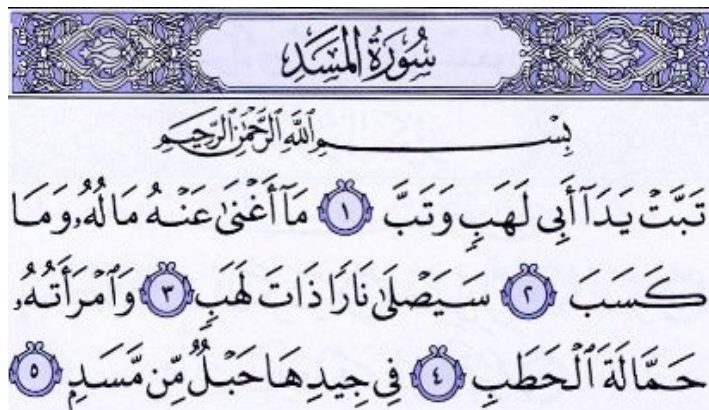 سُورَةُ المَسَدِ
بِسْمِ ٱللَّهِ ٱلرَّحْمَٰنِ ٱلرَّحِيمِ
تَبَّتْ يَدَآ أَبِى لَهَبٍ وَتَبَّ ١ مَآ أَغْنَىٰ عَنْهُ مَالُهُۥ وَمَا
كَسَبَ ٢ سَيَصْلَىٰ نَارًا ذَاتَ لَهَبٍ ٣ وَٱمْرَأَتُهُۥ
حَمَّالَةَ ٱلْحَطَبِ ٤ فِى جِيدِهَا حَبْلٌ مِّن مَّسَدٍ ٥